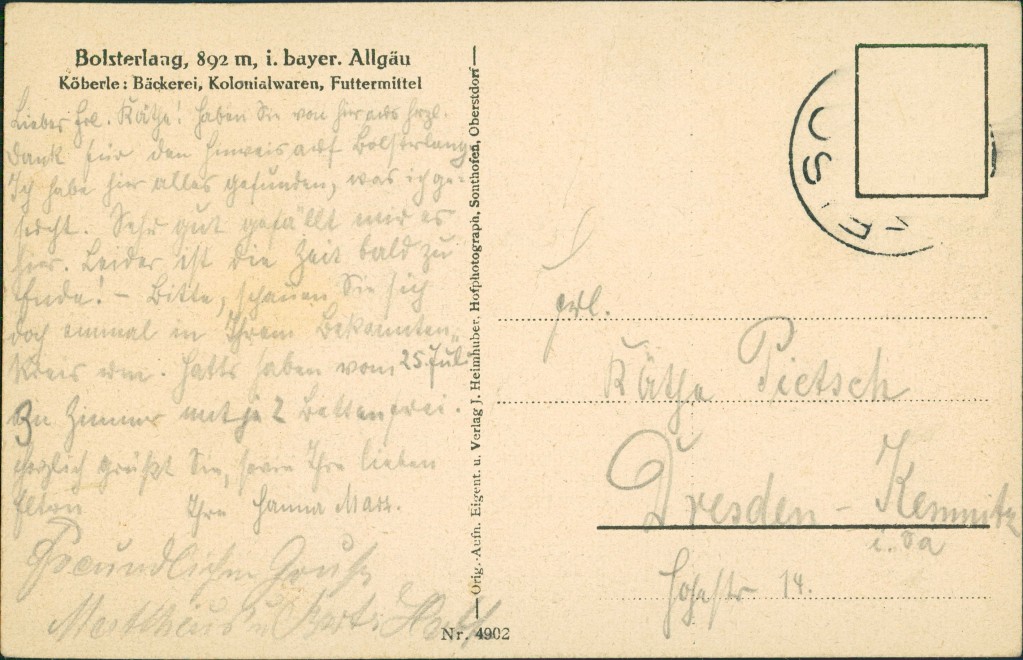 Bolsterlang, 892 m, i. bayer. Allgäu
Köberle: Bäckerei, Kolonialwaren, Futtermittel
Liebes Frl. Käthe! Haben Sie von hier aus herzl.
Dank für den Hinweis auf Bolsterlang.
Ich habe hier alles gefunden, was ich ge-
sucht. Sehr gut gefällt mir es
hier. Leider ist die Zeit bald zu
Ende! – Bitte, schauen Sie sich
doch einmal in Ihrem Bekannten-
Kreis um. Hätts haben vom 25. Juli
an Zimmer mit je 2 Betten frei.
Herzlich grüßt Sie, sowie Ihre lieben
Eltern Ihre Hanna
Freundliche Grüße
Matthäus u.
Orig.-Aufn. Eigent. u. Verlag J. Heimhuber, Hofphotograph, Sonthofen, Oberstdorf
Nr. 4902
Frl.
Käthe Pietsch
Dresden - Kemnitz
i. Sa
14.